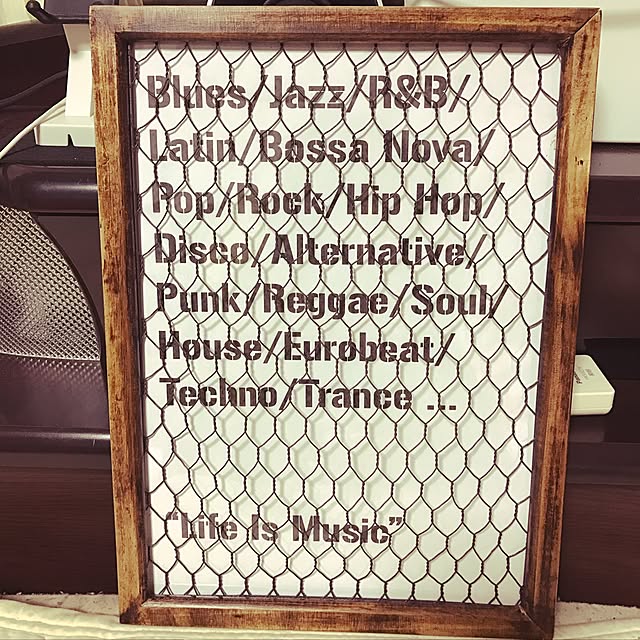 Blues/Jazz/R&B/
Latin/Bossa Nova/
Pop/Rock/Hip Hop/
Disco/Alternative/
Punk/Reggae/Soul/
House/Eurobeat/
Techno/Trance ...
“Life Is Music”